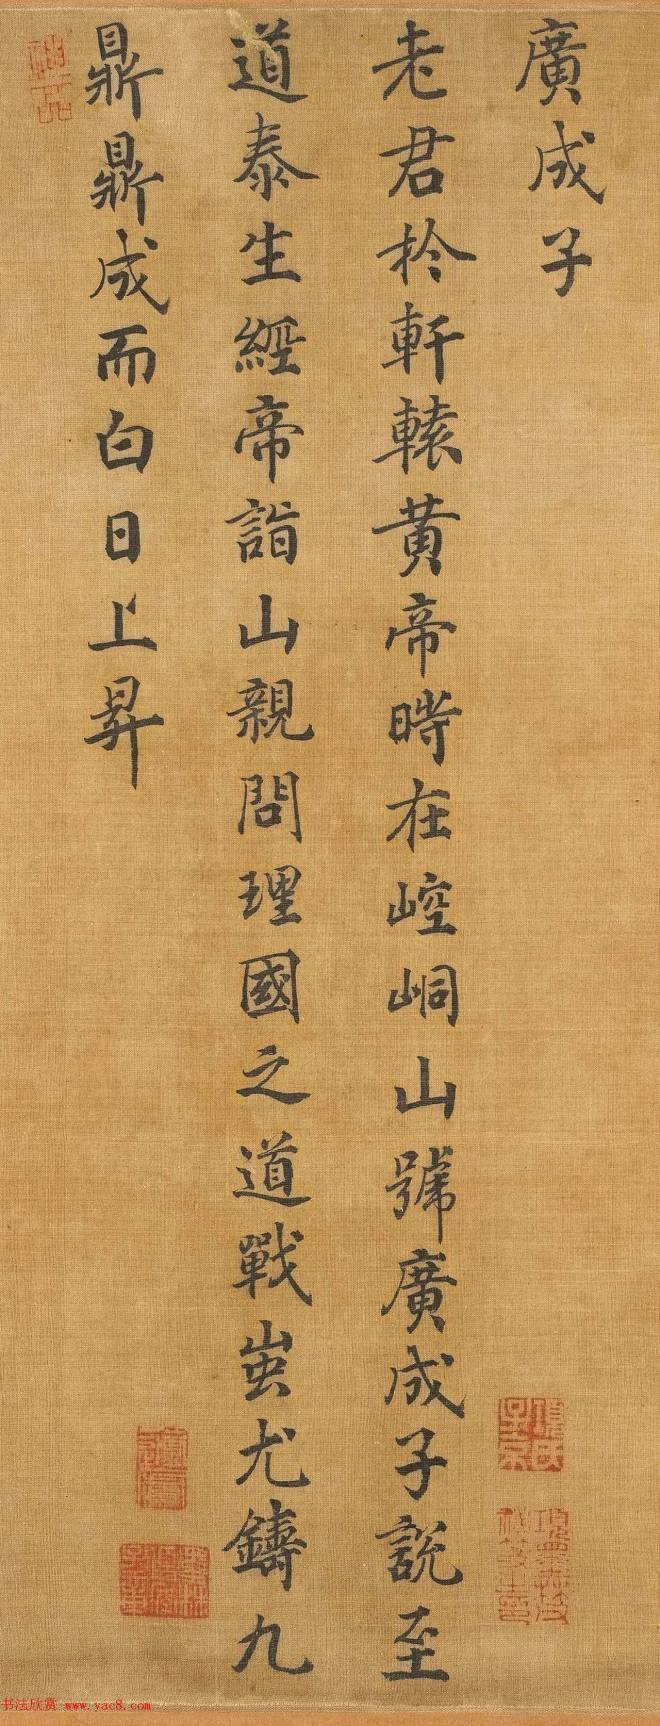 廣成子
老君扵軒轅黃帝時在崆峒山號廣成子說至
道泰生經帝詣山親問理國之道戰蚩尤鑄九
鼎鼎成而白日上昇
书法欣赏 www.yac8.com